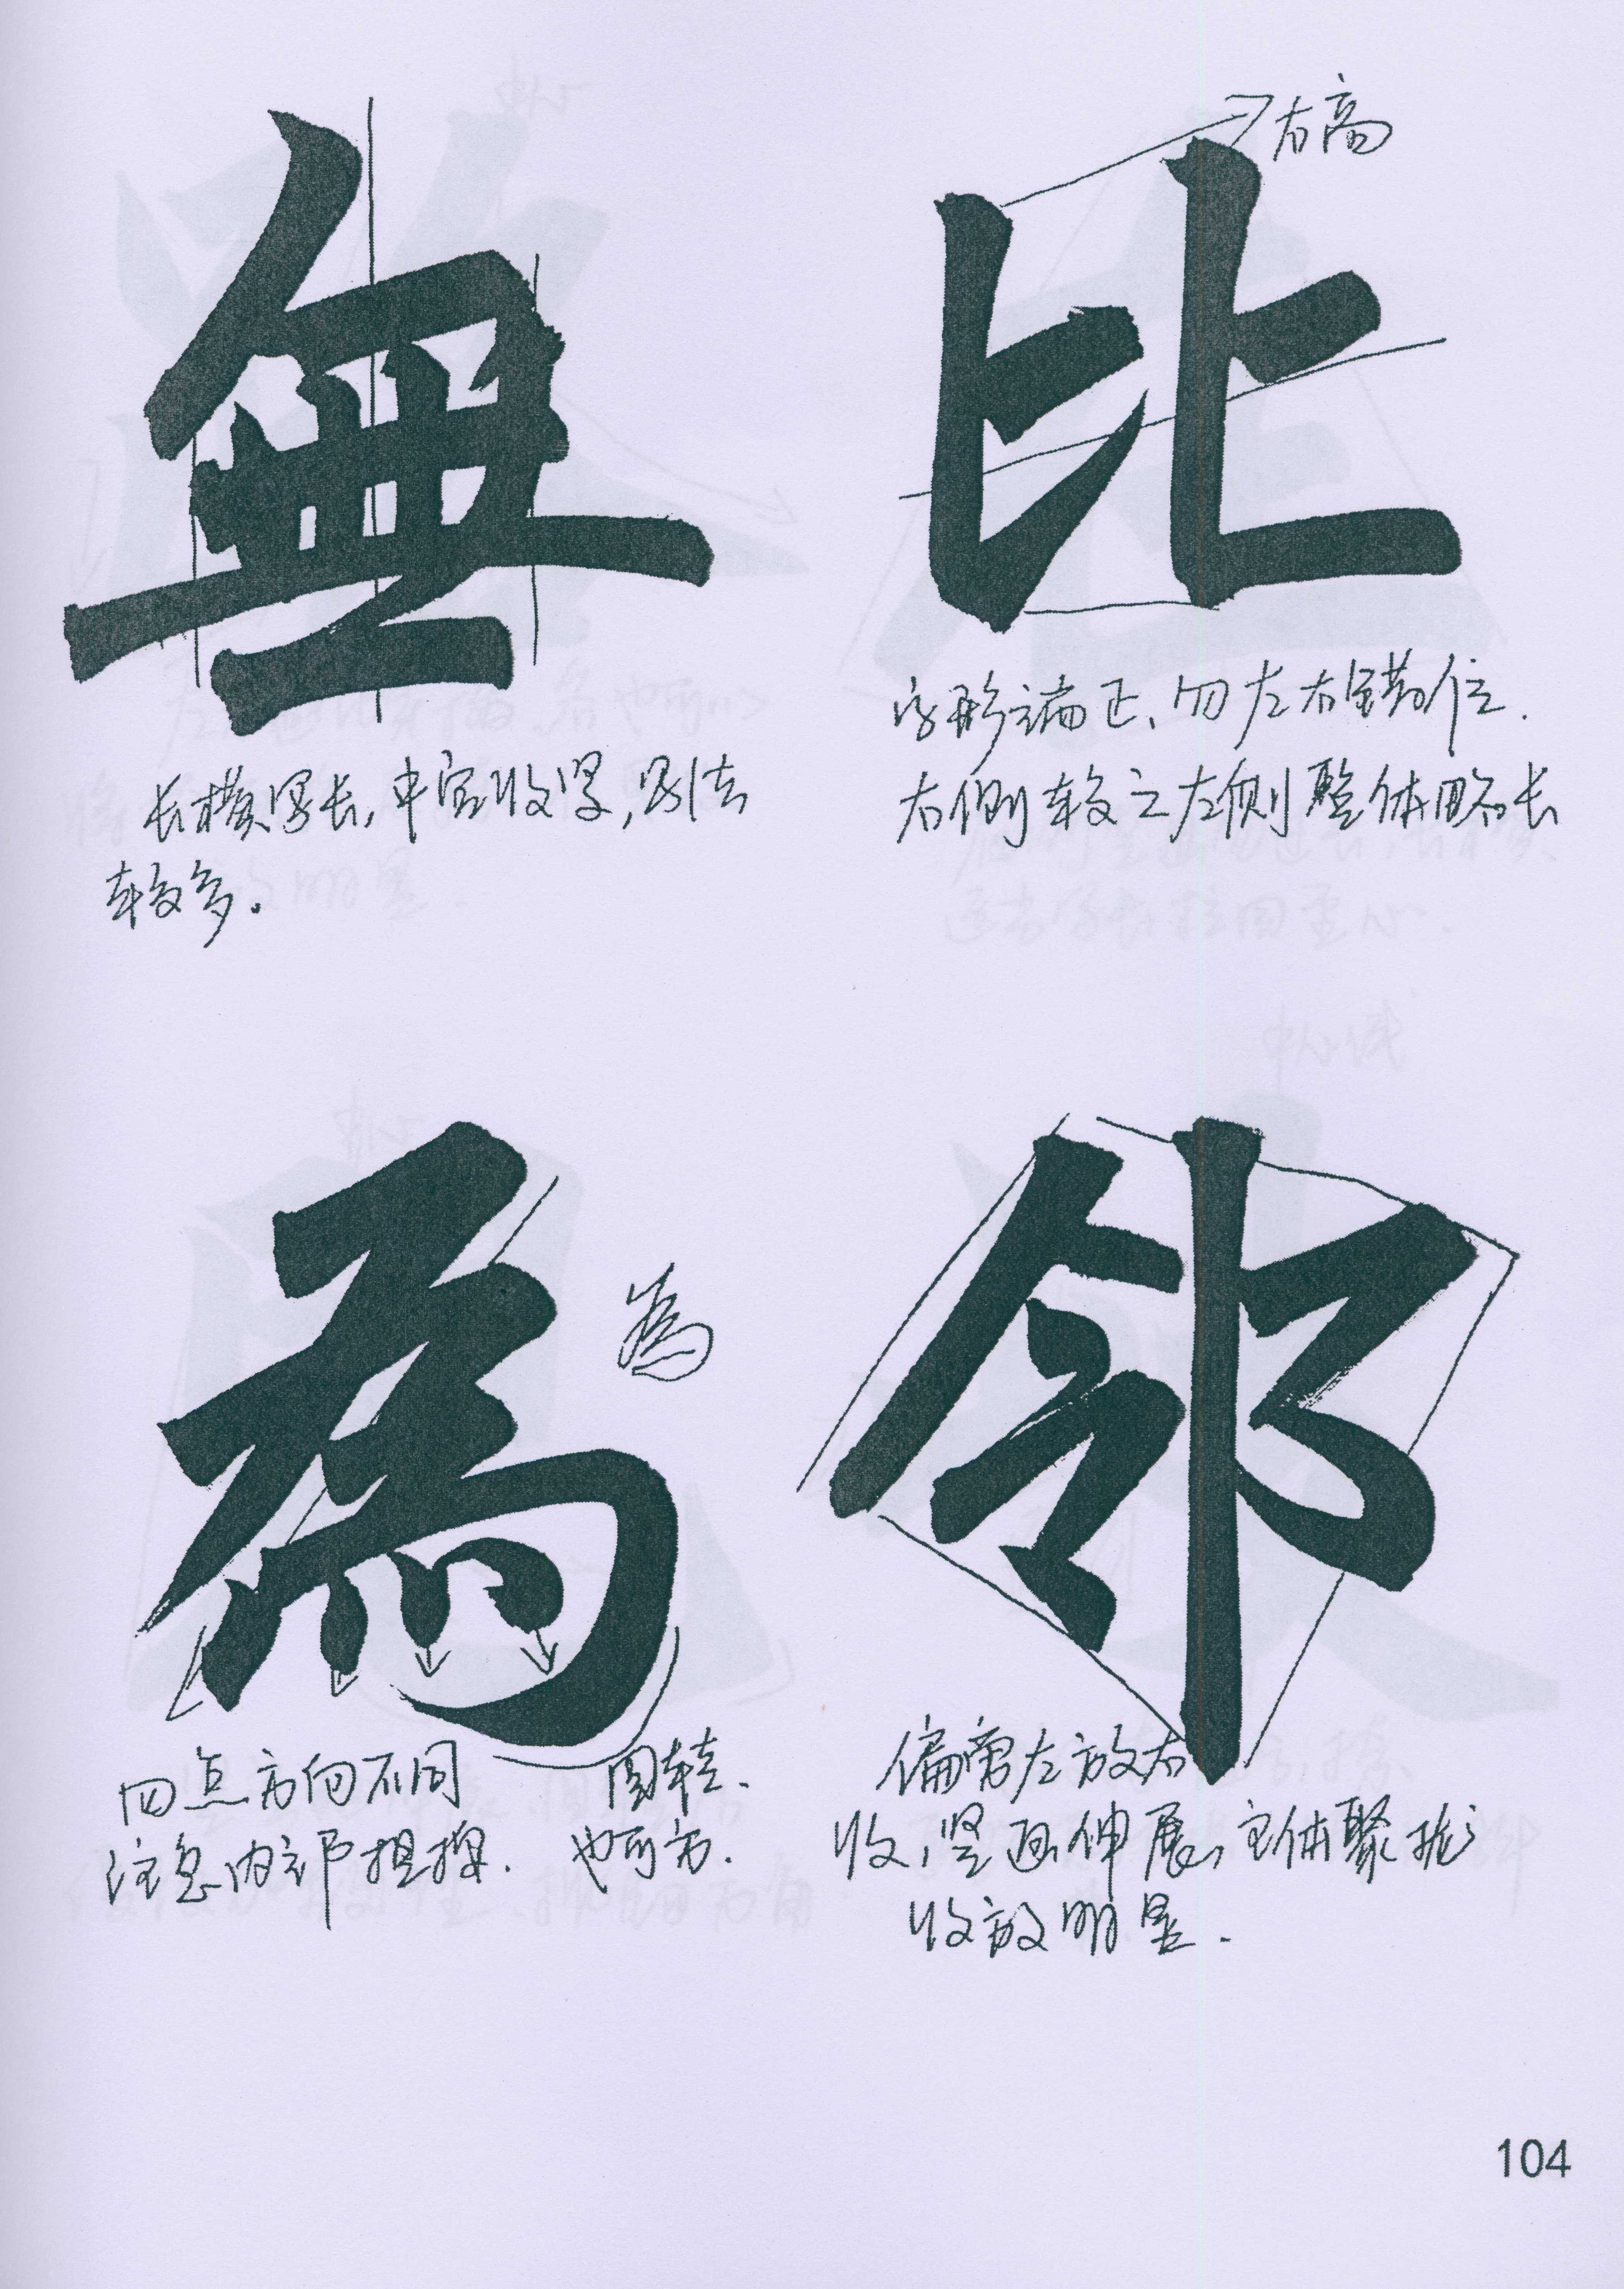 無
长横写长,中宫收紧,写法
较多.
比
右高
字形端正、勿左右错位.
右侧较之左侧整体略长
為
為
四点方向不同
注意内部揖揖.
圆转.
也可方.
邻
偏旁左放右
收,竖画伸展,主体聚拢
收放明显.
104